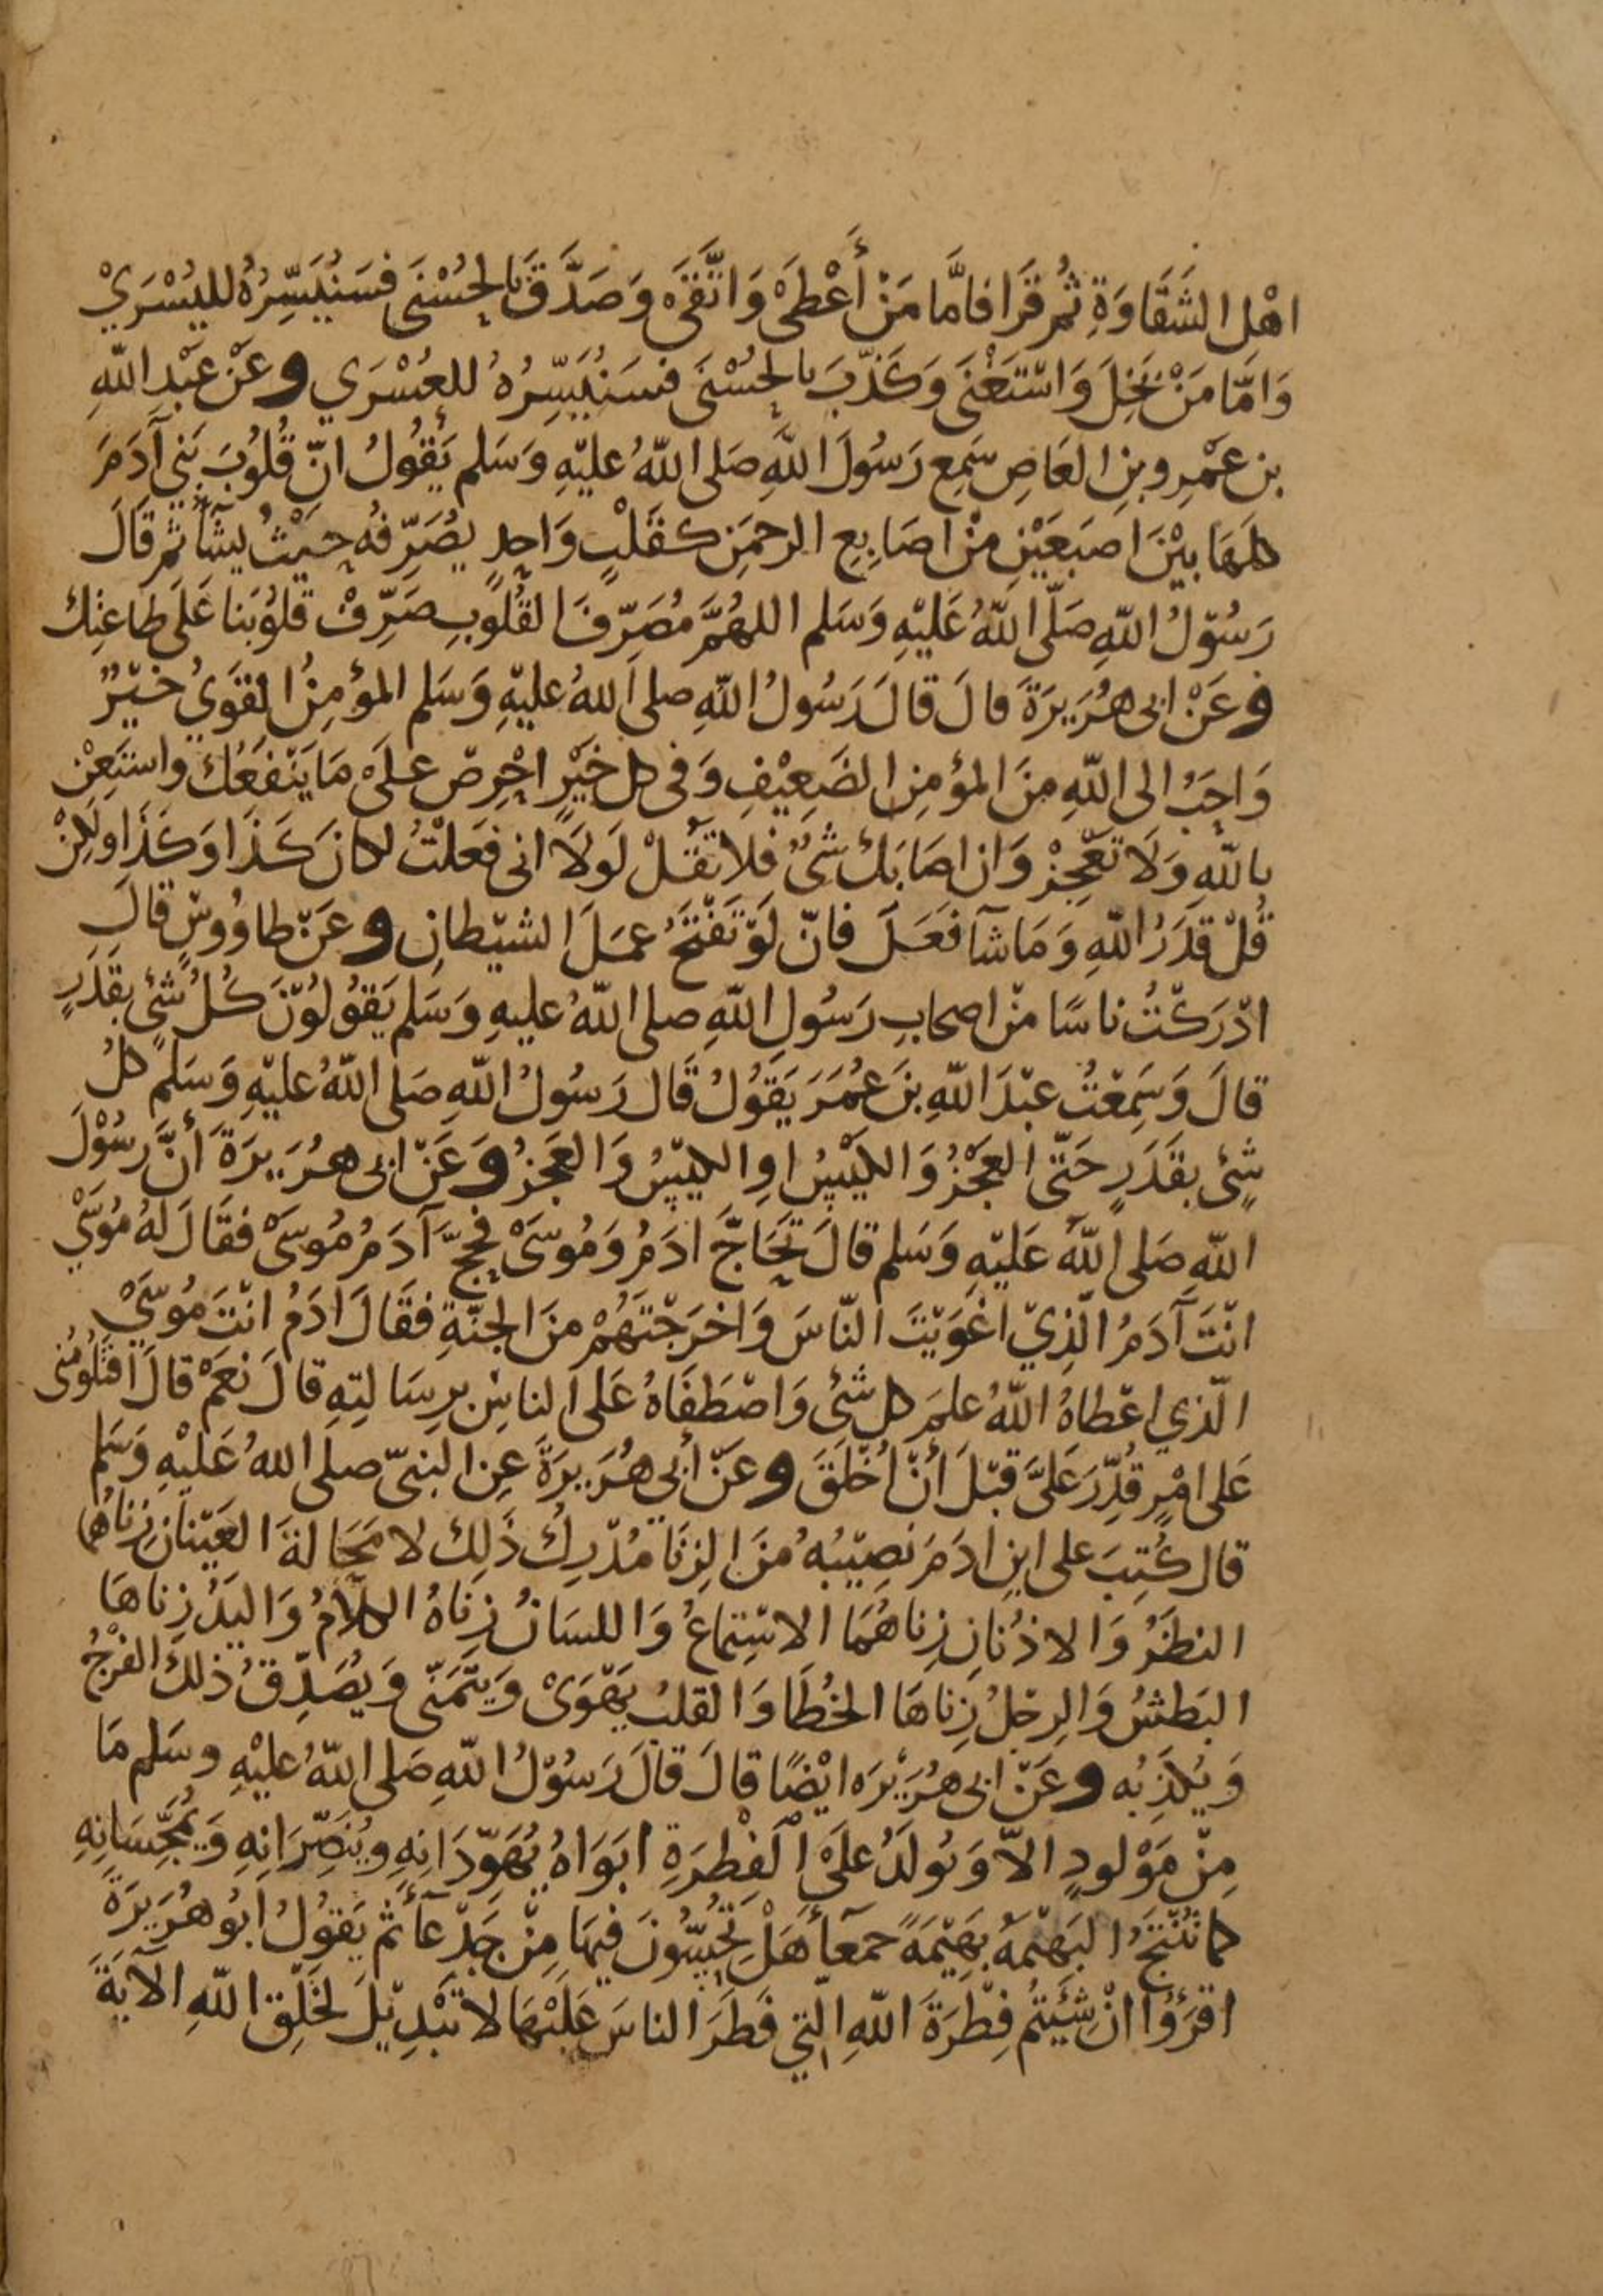 اهْل الشَقَاوَةِ ثُم قَرَا فامَّا مَنْ أَعْطَىْ وَاتَّقَىْ وَصَدَّقَ بالحُسْنَى فسَنُيَسِّرُهُ لليُسْرَيْ
وَامَّا مَنْ بَخِلَ وَاسْتَغْنَى وَكَذّبَ بالحُسْنَى فسَنُيَسِّرُهُ للعُسْرَي وعَنْ عَبْدِ اللّهِ
بن عَمْرِو بنِ العَاصِ سَمِع رَسُولَ اللّهِ صَلى اللّهُ عليْهِ وَسَلم يَقُولُ انّ قُلُوبَ بَنِي آدَمَ
كلهَا بيْنَ اصبَعَيْنِ منْ اصَابِعِ الرحمَنِ كقَلْبٍ وَاحِدٍ يصُرِّفُه حيْثُ يشَآُ ثم قَالَ
رَسُوْلُ اللّهِ صَلّى اللّهُ عَليْهِ وَسَلم اللهُمَّ مُصَرِّفَ القُلُوبِ صَرِّفْ قلوُبَنا عَلَى طاعتِك
وعَنْ ابى هُرَيرَةَ قالَ قالَ رَسُولُ اللّهِ صلى اللهُ عليْهِ وَسَلم المؤمِنُ القوَيُ خيْرٌ
وَاحَبُ الى اللّهِ منَ المؤمِنِ الضَعِيْفِ وَفى كل خَيْرٍ احْرِصْ عَلَىْ مَا يَنْفَعُكَ واستَعِنْ
باللّهِ وَلَا تعْجِزْ وَان اصَابَك شَىٌ فلا تقُلْ لَو لَا انى فعَلْتُ لكانَ كَذَا وَكَذَا ولكِنْ
قُلْ قدَرُ اللّهِ وَمَا شآَ فعَلَ فانّ لَوْ تفْتَحُ عمَلَ الشيْطانِ وعَنْ طاوُوسٍ قالَ
ادْرَكْتُ ناسًا منْ اصحابِ رَسُولِ اللّهِ صلى اللّهُ عليهِ وَسَلم يَقوُلوُنَ كُلُ شَىٍ بقَدَرٍ
قالَ وَسَمِعْتُ عبْدَ اللّهِ بنَ عُمَرَ يَقوُلُ قَال رَسُولُ اللّهِ صَلى اللّهُ عليْهِ وَسَلم كلُ
شَىٍ بقَدَرٍ حَتّى العَجْزُ وَالكيْسُ اوِ الكيْسُ وَالعَجزُ وَعَنْ ابى هرُيَرَةَ أنَّ رسُوْلَ
اللّهِ صَلى اللّهُ عَليْهِ وَسَلم قالَ تَحَاجَّ ادَمُ وَمُوسَىْ فحَجَّ آدَمُ مُوسَىْ فقَالَ لَهُ مُوسَيْ
انْتَ آدَمُ الّذِيْ اغْوَيْتَ النّاسَ وَاخرَجْتَهُمْ منَ الجنّةِ فقَالَ ادَمُ انْتَ مُوسَيْ
الّذي اعْطاهُ اللّهُ علمَ كل شَئٍ وَاصْطَفَاهُ عَلى الناسِ برِسَالتِهِ قالَ نعَمْ قالَ افتلُومُنى
عَلى امْرٍ قُدِّرَ عَلىَّ قبْلَ أنْ اُخْلَقَ وعَنْ أبى هُرَيرَةَ عِن النبىّ صلى اللهُ عَليْهِ وَسَلم
قال كُتِبَ على ابنِ ادَمَ نصِيْبُهُ منَ الزِنَا مُدْرِكُ ذَلِكَ لا مَحَالةَ العَيْنانِ زنَاهُما
النظَرُ وَالاذُنانِ زِناهُمَا الاسْتِماعُ وَاللسَانُ زِنَاهُ الكلَامُ وَاليَدُ زِناهَا
البَطشُ وَالرِجْلُ زِناهَا الخُطَا وَالقلبُ يَهْوَىْ وَيتَمَنّى وَيصُدِّقُ ذلكَ الفَرْجُ
وَيُكذِبُه وعَنْ ابى هُرَيْرَه ايْضًا قالَ قالَ رَسُوْلُ اللّهِ صَلى اللّهُ عليْهِ وسَلم مَا
مِنْ مَوْلودٍ الاّ وَيُولَدُ علَىْ الفِطْرَةِ ابَوَاهُ يُهَوّدَانِهِ ويُنَصِّرَانِهِ وَيُمَجِّسَانِهِ
كما تُنْتَجُ البَهيْمةُ بهَيْمَةً جمعآَ هَلْ تُحِسّونَ فيهَا مِنْ جَدْعآَ ثم يَقوُلُ ابُو هُرَيرَةَ
اقرَؤُا انْ شِئْتُم فِطْرَةَ اللّهِ الّتي فَطَرَ الناسَ عَليْهَا لا تبْدِيْلَ لخَلْقِ اللّهِ الآيَةَ